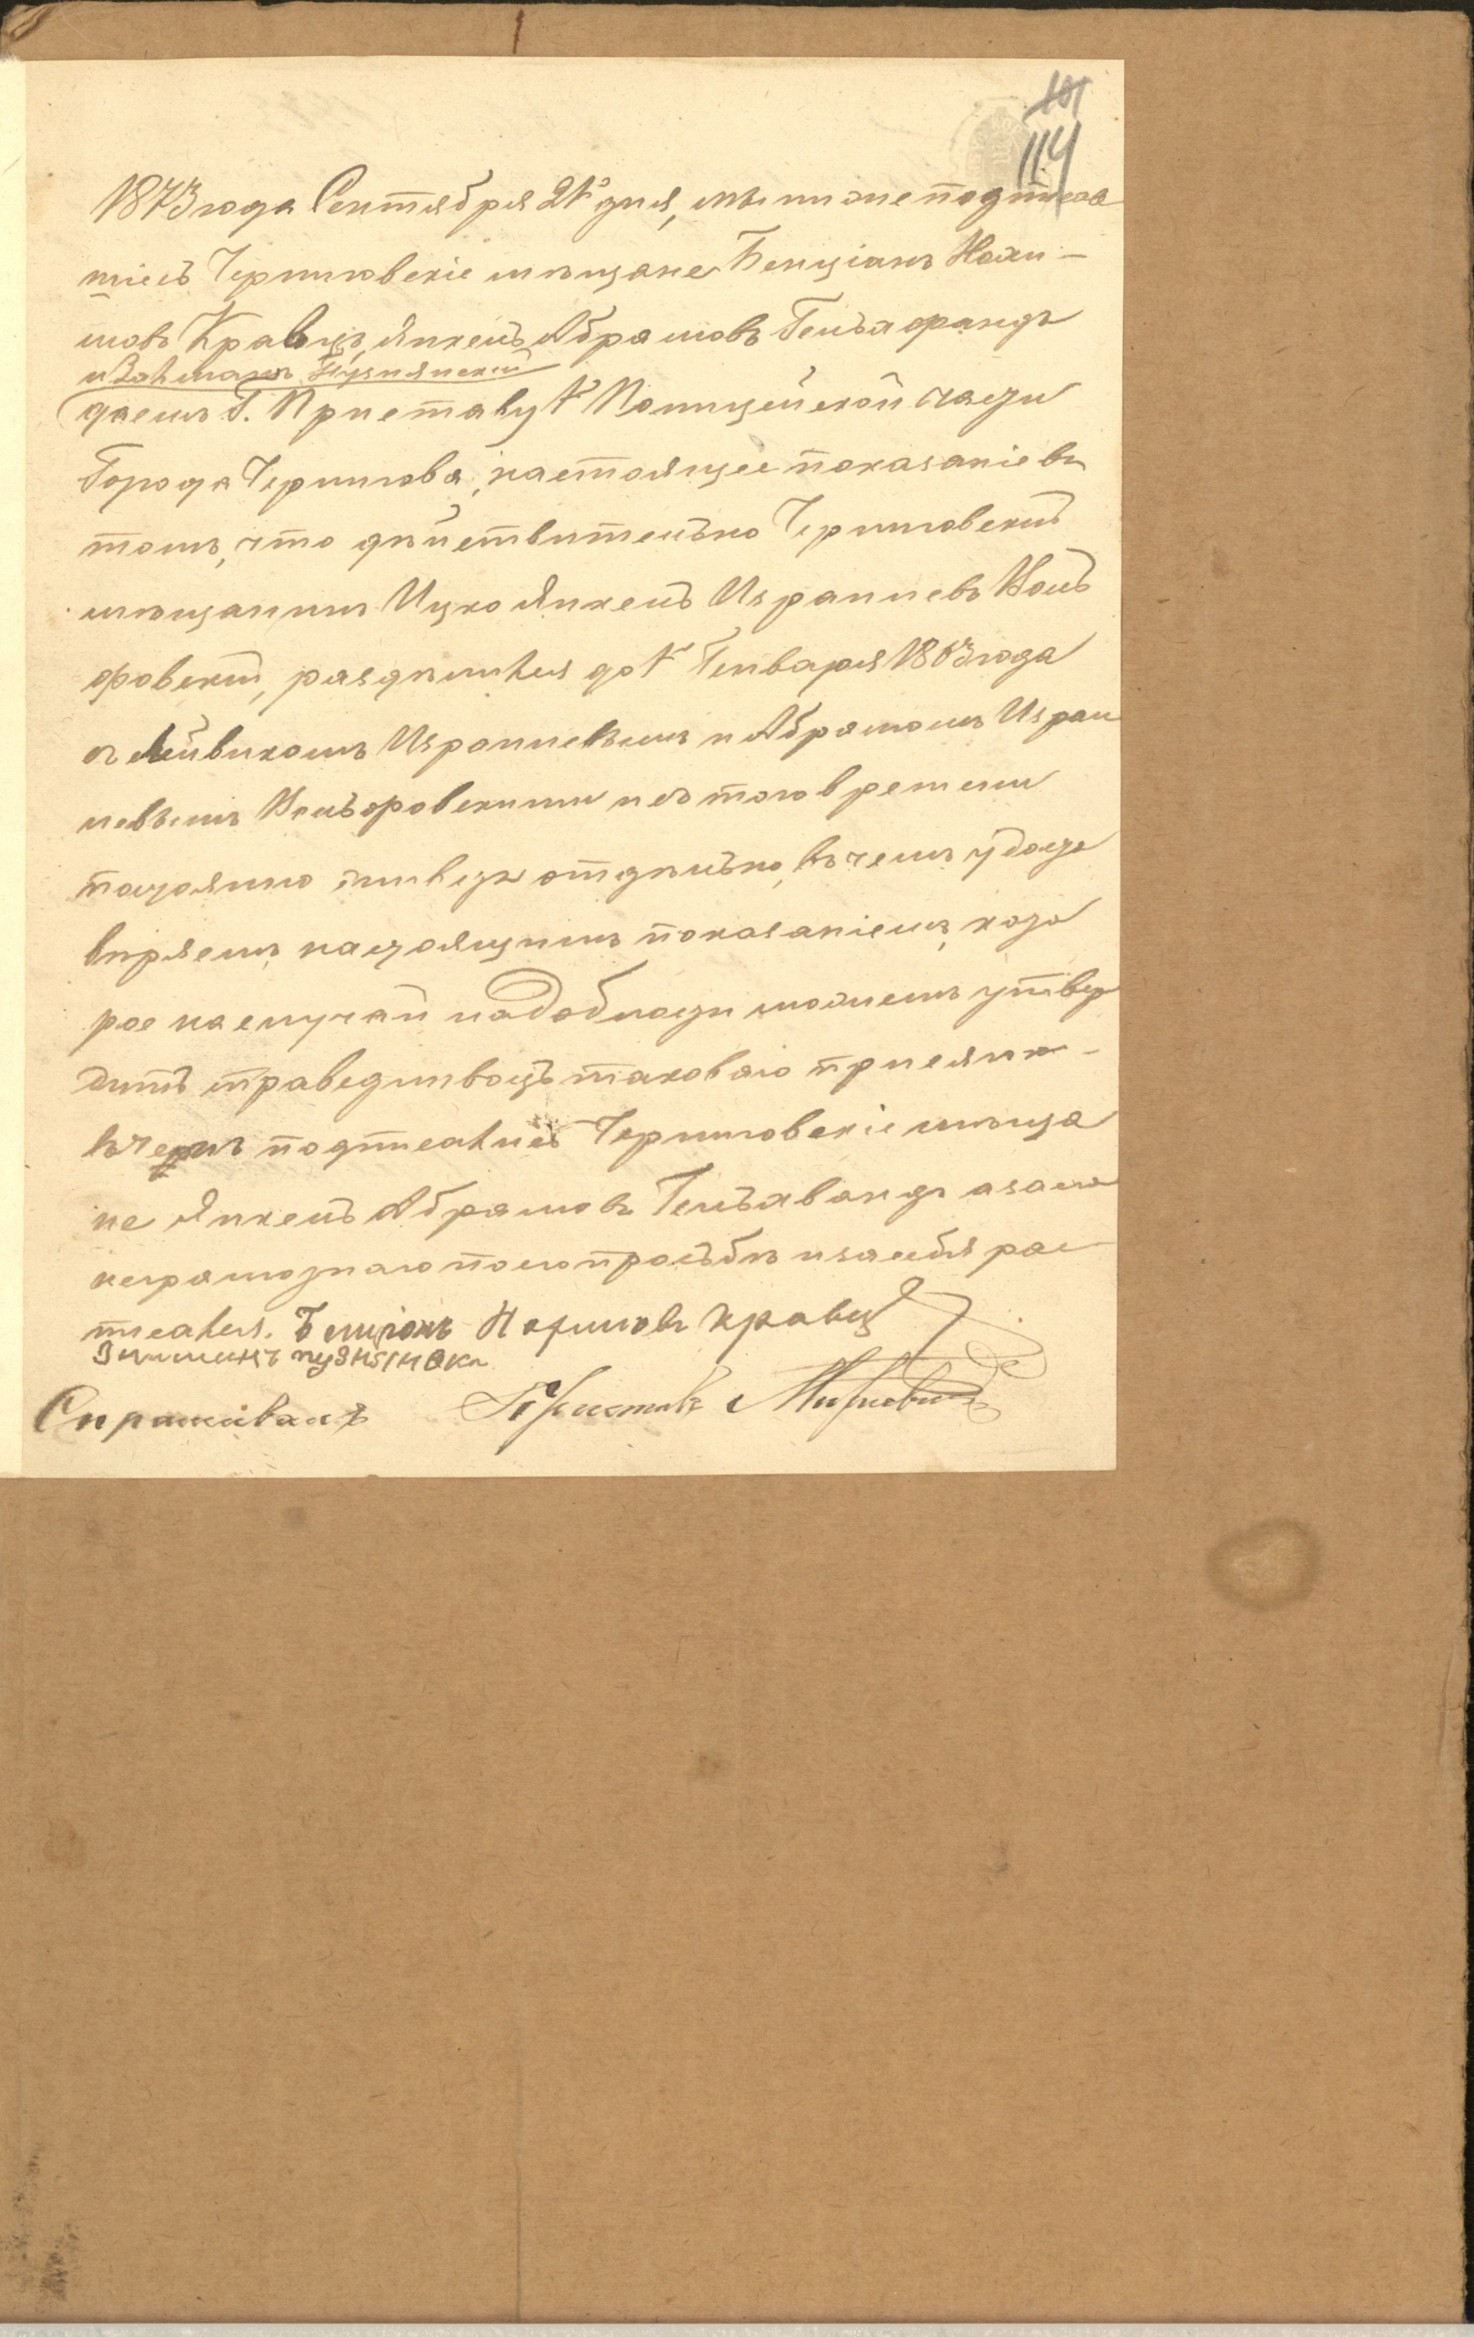 101
114
1873 года Сентября 21го дня, мы нижеподписав
шiесь Черниговскiе мѣщане Бенцiанъ Нохи-
мовъ Кравецъ, Янкель Абрамовъ Гельфандъ
и Залманъ Пузнянскiй
даемъ Г. Приставу 1й Полицейской части
Города Чернигова, настоящее показанiе въ
томъ, что дѣйствительно Черниговскiй
мѣщанинъ Ицко Янкель Израилевъ
раздѣлился до 1го Генваря 1863 года
съ Лейвикомъ Израилевымъ и Абрамомъ Израи
левымъ и съ того времени
живетъ отдѣльно, въ чемъ удосто
вѣряемъ настоящимъ показанiемъ, кото
рое на случай надобности можемъ утвер
дить справедливость таковаго присягою-
въ чемъ подписались Черниговскiе мѣща
не Янкель Абрамовъ Гельхвандъ а за
неграмотнаго по его просьбѣ и за себя рас
писался. Бенцiонъ Нохимовъ Кравец
Спрашивалъ Приставъ